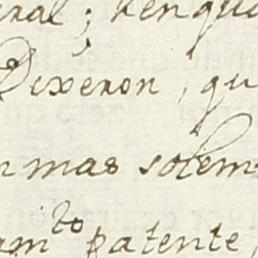 ral; Ren qu
Dixeron, qu
n mas solem
am to patente,